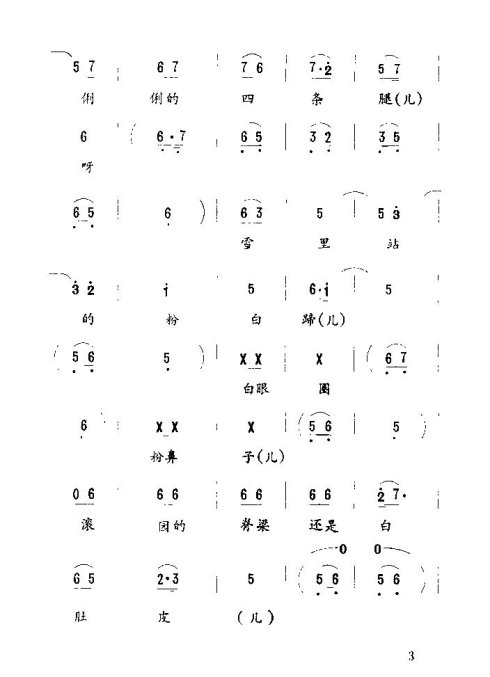 5 7 | 6 7 | 7 6 | 7·2̇ | 5 7
俐 俐的 四 条 腿(儿)
6 | (6̣·7̣ | 6̣ 5̣ | 3 2 | 3̣ 5̣
呀
6̣ 5̣ | 6̣ ) | 6 3 | 5 | 5 3̇
雪 里 站
3̇ 2̇ | 1̇ | 5 | 6·1̇ | 5
的 粉 白 蹄(儿)
(5̣ 6̣ | 5̣ ) | X X | X | (6̣ 7̣
白眼 圈
6̣ | X X | X | (5̣ 6̣ | 5̣ )
粉鼻 子(儿)
0 6 | 6 6 | 6 6 | 6 6 | 2̇ 7·
滚 园的 脊梁 还是 白
0 0
6̣ 5̣ | 2·3 | 5 | (5̣ 6̣ | 5̣ 6̣ )
肚 皮 (儿)
3